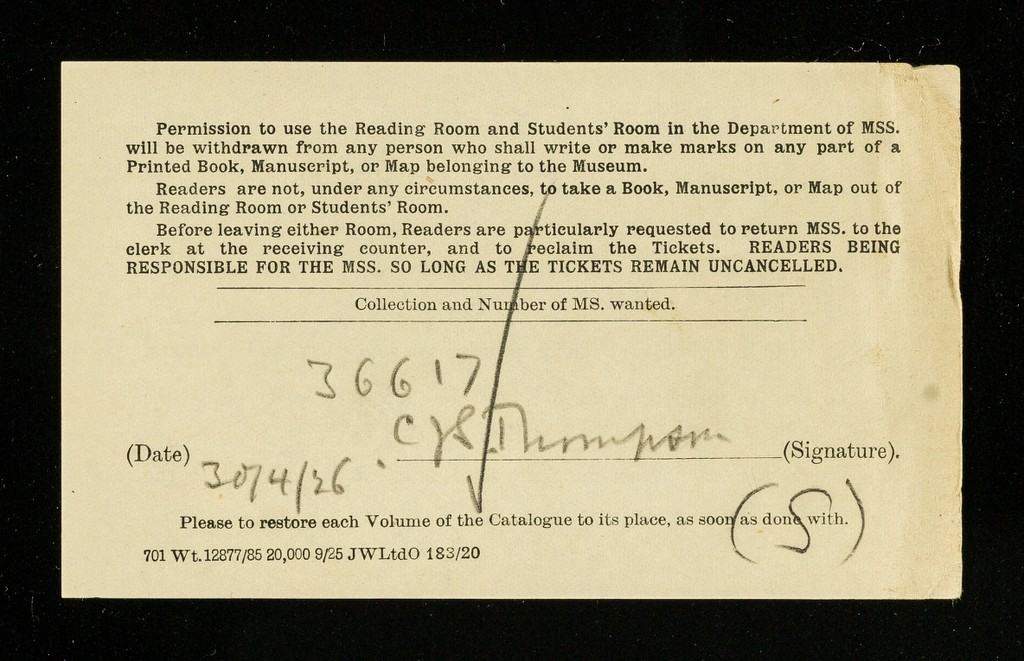 Permission to use the Reading Room and Students' Room in the Department of MSS.
will be withdrawn from any person who shall write or make marks on any part of a
Printed Book, Manuscript, or Map belonging to the Museum.
Readers are not, under any circumstances, to take a Book, Manuscript, or Map out of
the Reading Room or Students' Room.
Before leaving either Room, Readers are particularly requested to return MSS. to the
clerk at the receiving counter, and to reclaim the Tickets. READERS BEING
RESPONSIBLE FOR THE MSS. SO LONG AS THE TICKETS REMAIN UNCANCELLED.
Collection and Number of MS. wanted.
36617
C J S. Thompson
(Date) (Signature).
30/4/26.
Please to restore each Volume of the Catalogue to its place, as soon as done with.
(S)
701 Wt.12877/85 20,000 9/25 JWLtdO 183/20